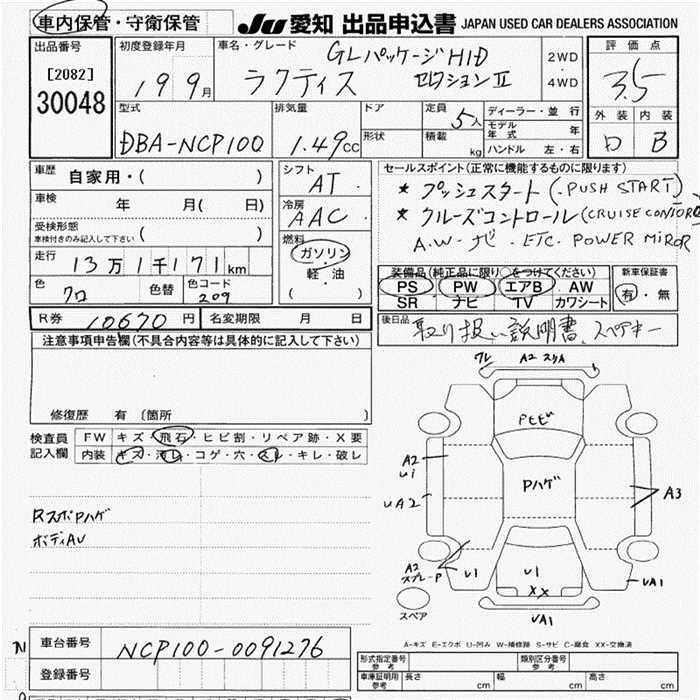 車内保管・守衛保管 JU 愛知 出品申込書 JAPAN USED CAR DEALERS ASSOCIATION
出品番号 初度登録年月 車名・グレード GLパッケージHID 2WD 評価点
[2082] 19 9月 ラクティス セクションⅡ 4WD 3.5
30048
型式 排気量 ドア 定員 5人 ディーラー・並行 外装 内装
DBA-NCP100 1.49cc 形状 積載 kg モデル年式 年 D B
ハンドル 左・右
車歴 自家用・( ) シフト AT セールスポイント(正常に機能するものに限ります)
車検 年 月( 日) 冷房 AAC ★ プッシュスタート(.PUSH START)
受検形態 ★ クルーズコントロール(CRUISE CONTOROL)
車検付きのみ記入して下さい ( ) 燃料 ガソリン・ A.W-ナビ.ETC.POWER MIROR
走行 13万1千171km 軽油 ( ) 装備品(純正品に限り○をつけてください) 新車保証書
色 クロ 色替 色コード 209 PS PW エアB AW 有・無
SR ナビ TV カワシート
R券 10670円 名変期限 月 日 後日品 取り扱い説明書、スペアキー
注意事項申告欄(不具合内容等は具体的に記入して下さい)
修復歴 有 〔箇所 〕
検査員 FW キズ・飛石・ヒビ割・リペア跡・X要
記入欄 内装 キズ・汚レ・コゲ・穴・スレ・キレ・破レ
RスポPハゲ
ボディAU
ワレ A2 スリA
Fセビ
A2
Ui
UA2
Pハゲ
A3
A2
スプレーP
U1
U1
XX
UA1
UA1
スペア
A-キズ E-エクボ U-凹み W-補修跡 S-サビ C-腐食 XX-交換済
N 車台番号 NCP100-0091276
登録番号
形式指定番号 参考 類別区分番号 参考
車庫証明用 参考 長さ cm 幅 cm 高さ cm